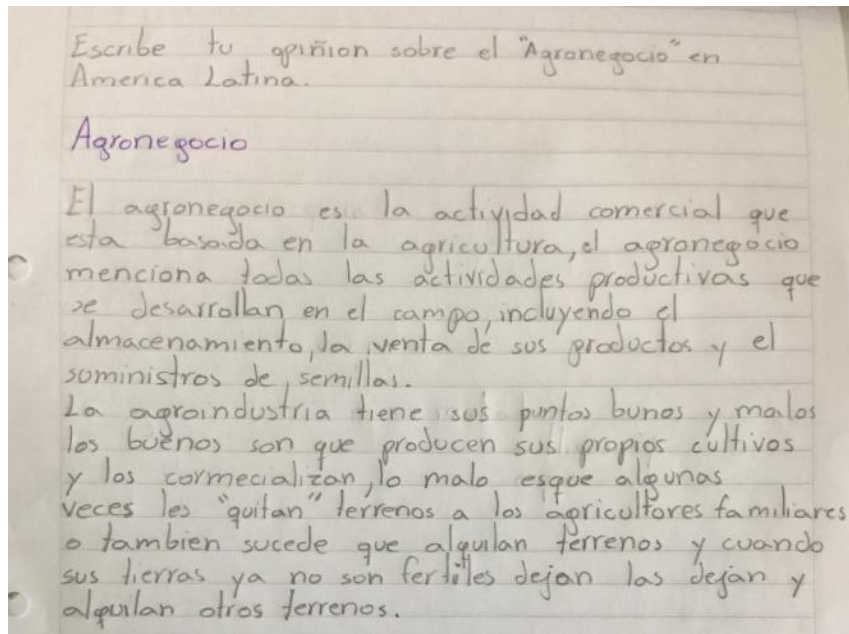 Escribe tu opiñion sobre el "Agronegocio" en
America Latina.
Agronegocio
El agronegocio es la actividad comercial que
esta basada en la agricultura, el agronegocio
menciona todas las actividades productivas que
se desarrollan en el campo, incluyendo el
almacenamiento, la venta de sus productos y el
suministros de semillas.
La agroindustria tiene sus puntos bunos y malos
los buenos son que producen sus propios cultivos
y los cormecializan, lo malo esque algunas
veces les "quitan" terrenos a los agricultores familiares
o tambien sucede que alquilan terrenos y cuando
sus tierras ya no son fertiles dejan las dejan y
alquilan otros terrenos.